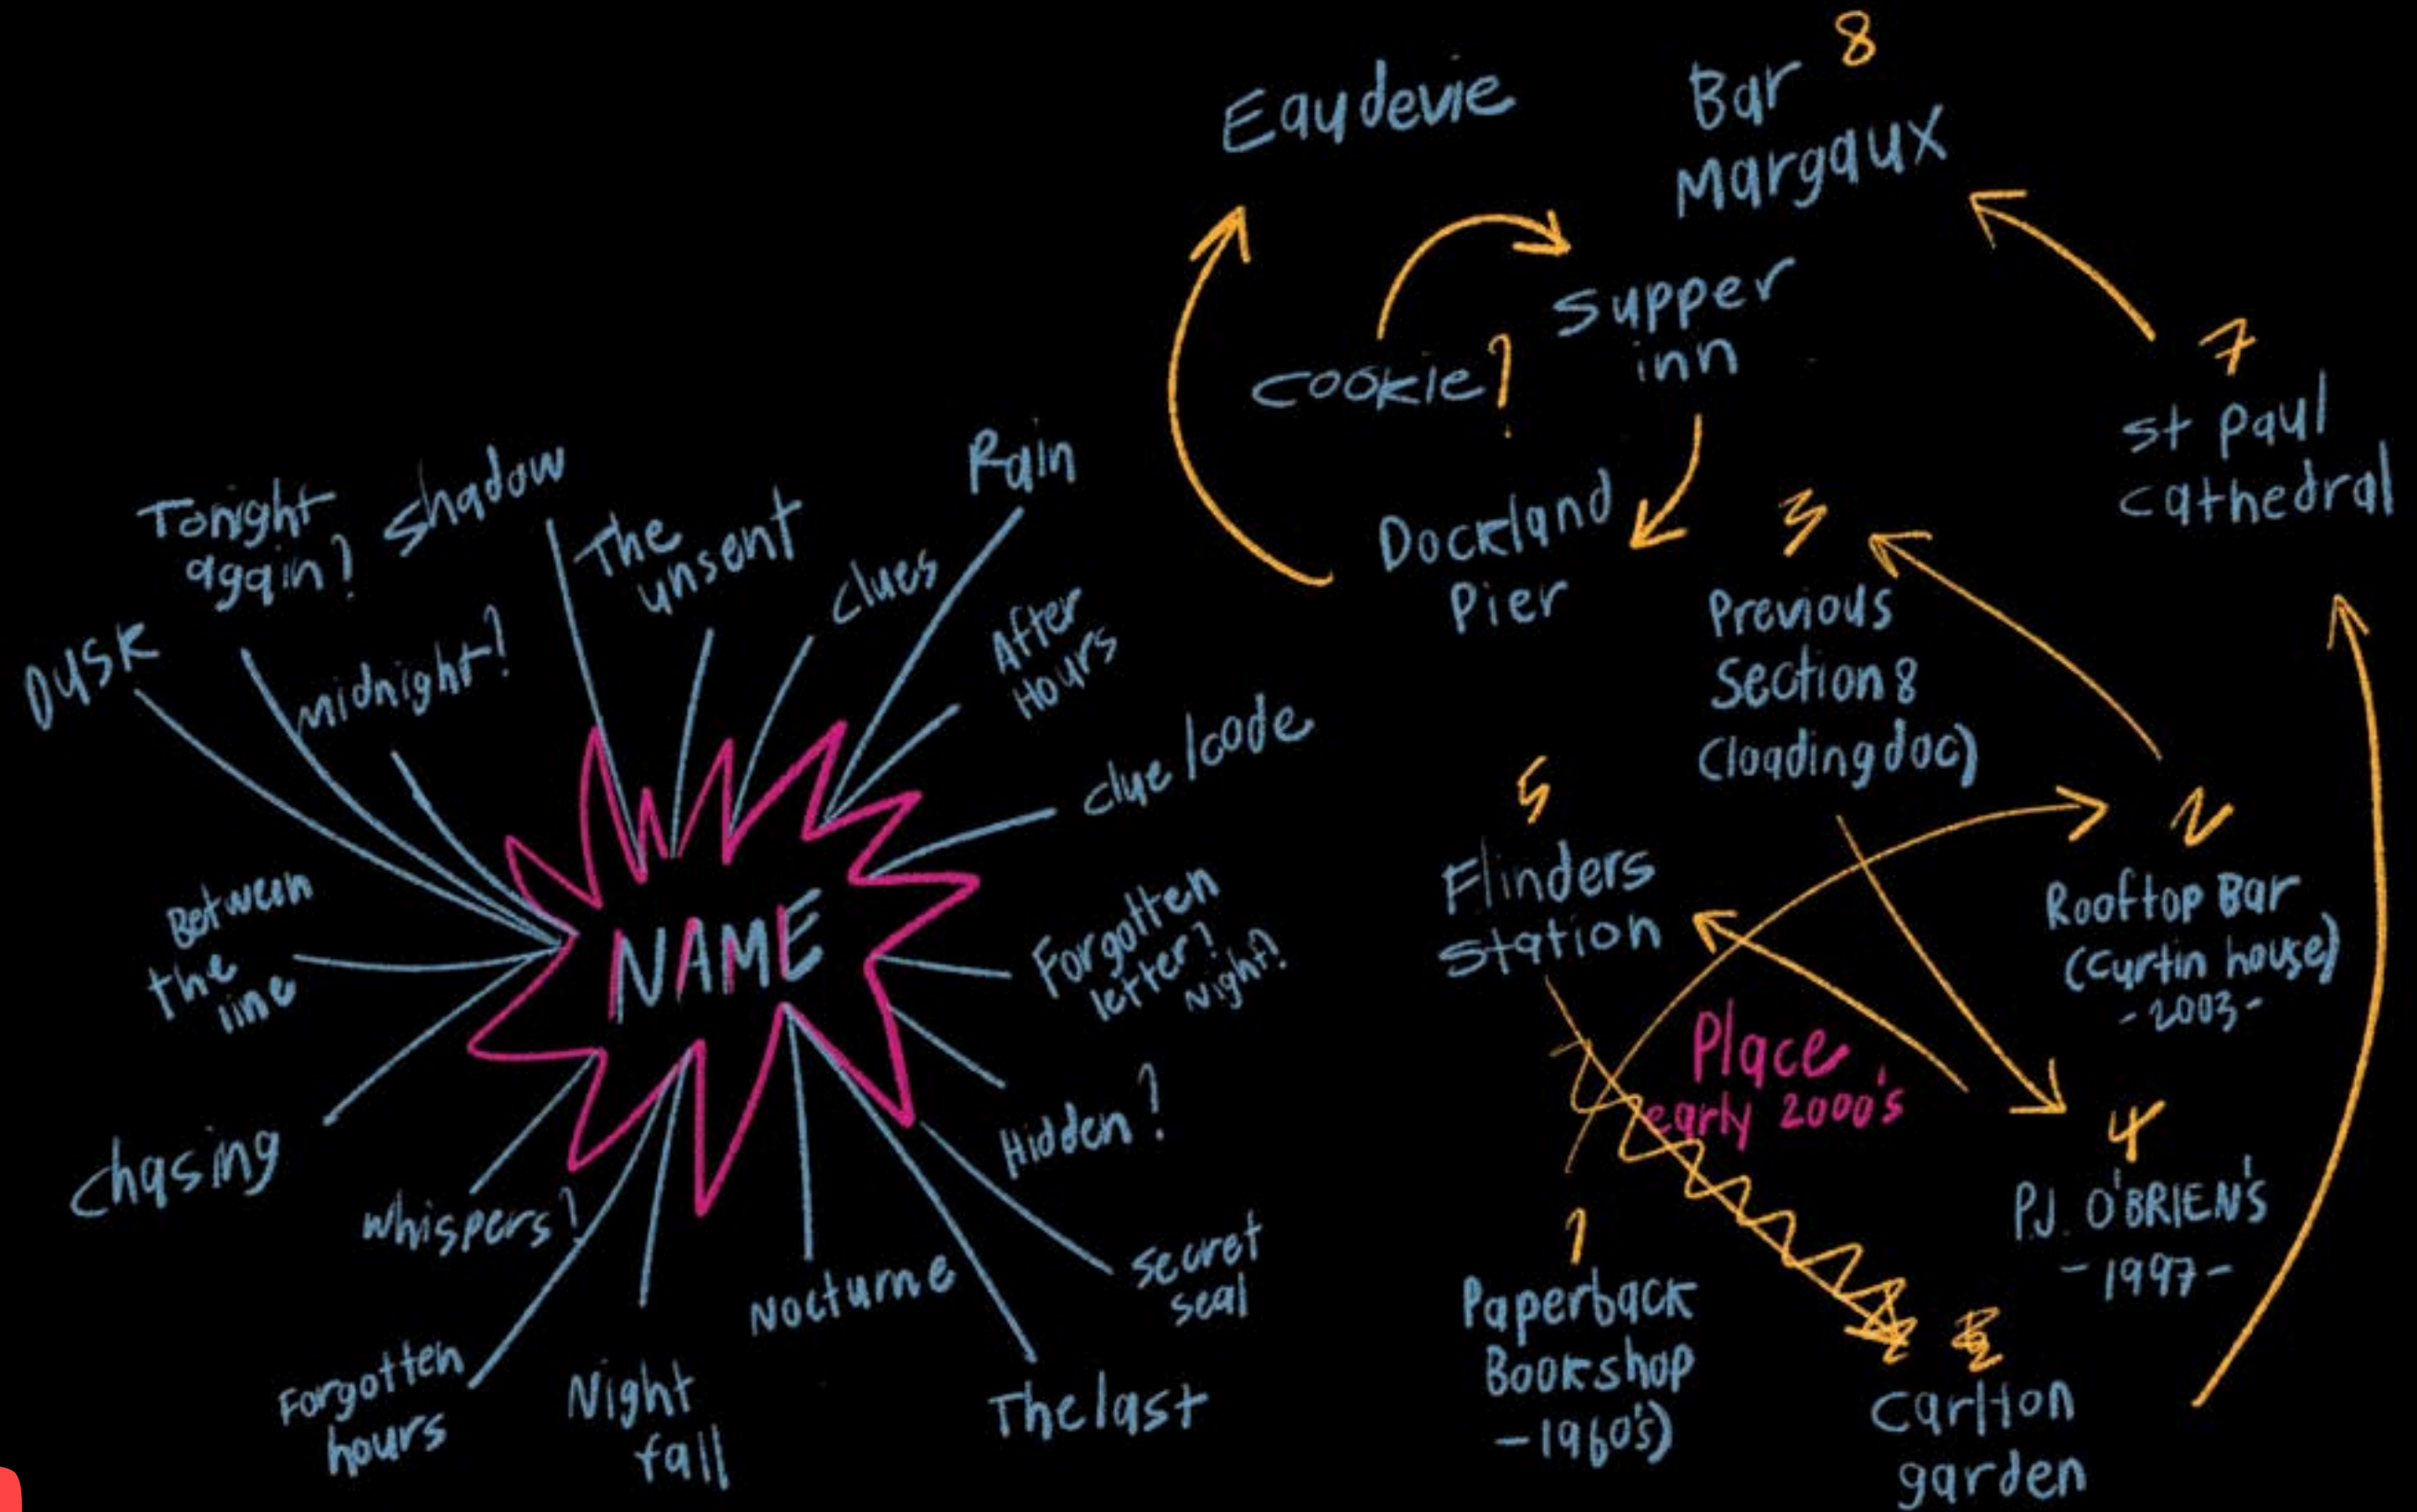 Dusk
Tonight
again?
Shadow
midnight?
The
unsent
clues
Rain
After
Hours
clue/code
Forgotten
letter?
Night?
Hidden?
secret
seal
The last
Nocturne
Night
fall
Forgotten
hours
whispers?
chasing
Between
the
line
NAME
Eaudevie
Bar
Margaux
8
cookie?
Supper
inn
Dockland
Pier
7
St Paul
cathedral
3
Previous
Section 8
(loadingdoc)
5
Flinders
station
2
Rooftop Bar
(Curtin house)
-2003-
Place
early 2000's
4
P.J. O'BRIEN'S
-1997-
1
Paperback
Bookshop
-1960's)
Carlton
garden